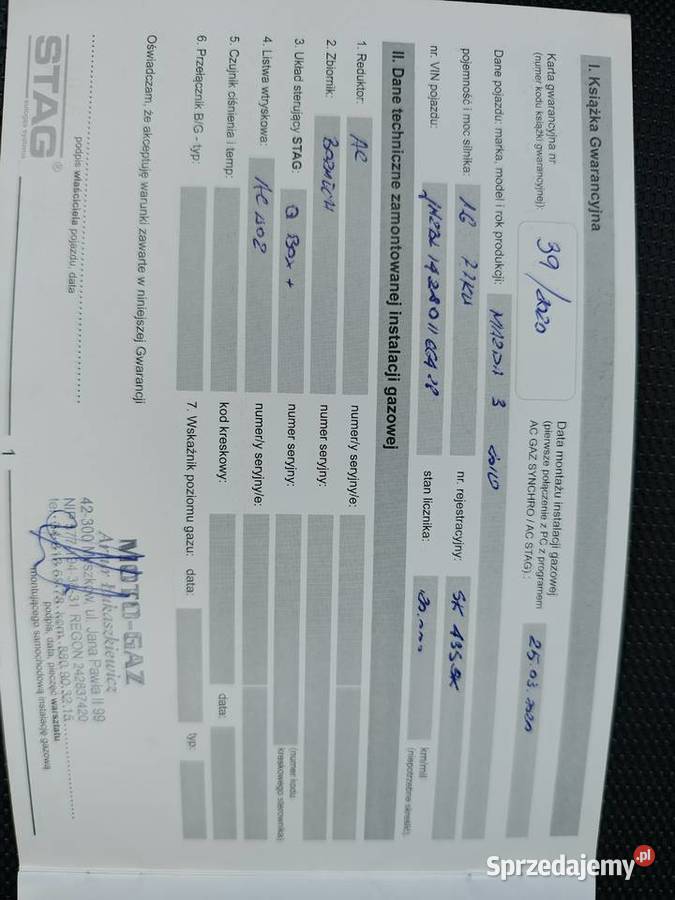 I. Książka Gwarancyjna
Karta gwarancyjna nr
(numer kodu książki gwarancyjnej):
39/2020
Data montażu instalacji gazowej
(pierwsze połączenie z PC z programem
AC GAZ SYNCHRO / AC STAG):
25.03.2020
Dane pojazdu: marka, model i rok produkcji: MAZDA 3 2010
pojemność i moc silnika: 1.6 77KW nr. rejestracyjny:
nr. VIN pojazdu: stan licznika: km/mil
(niepotrzebne skreślić)
II. Dane techniczne zamontowanej instalacji gazowej
1. Reduktor: AC numer/y seryjny/e:
2. Zbiornik: numer seryjny:
3. Układ sterujący STAG: Q Box + numer seryjny: (numer kodu
kreskowego sterownika)
4. Listwa wtryskowa: AC W02 numer/y seryjny/e:
5. Czujnik ciśnienia i temp: kod kreskowy: data:
6. Przełącznik B/G - typ: 7. Wskaźnik poziomu gazu: data: typ:
Oświadczam, że akceptuję warunki zawarte w niniejszej Gwarancji
MOTO-GAZ
42-300 Myszków, ul. Jana Pawła II 99
REGON 242837420
podpis właściciela pojazdu, data
podpis, data, pieczęć warsztatu
montującego samochodową instalację gazową
STAG®
autogas systems
1
Sprzedajemy.pl